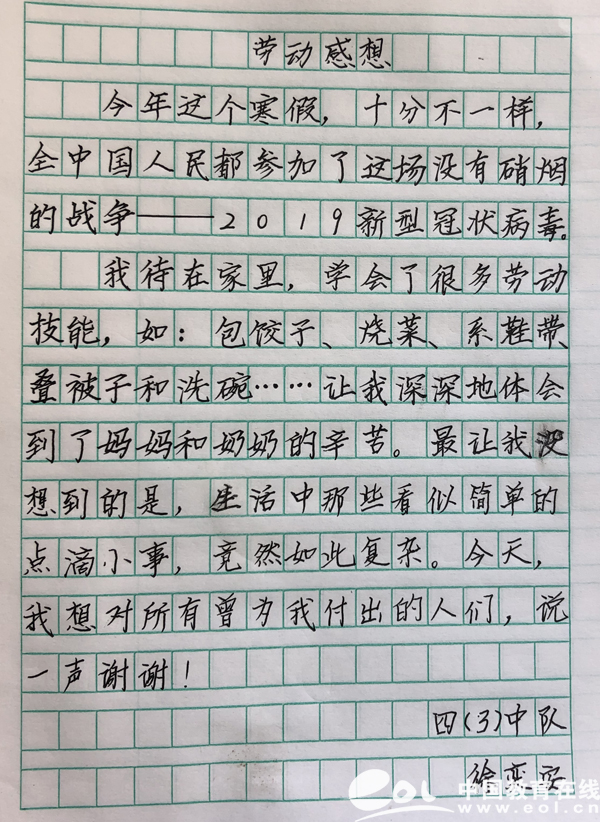 劳动感想
今年这个寒假，十分不一样，
全中国人民都参加了这场没有硝烟
的战争——2019新型冠状病毒。
我待在家里，学会了很多劳动
技能，如：包饺子、烧菜、系鞋带、
叠被子和洗碗……让我深深地体会
到了妈妈和奶奶的辛苦。最让我没
想到的是，生活中那些看似简单的
点滴小事，竟然如此复杂。今天，
我想对所有曾为我付出的人们，说
一声谢谢！
四(3)中队
徐
eol 中国教育在线
www.eol.cn